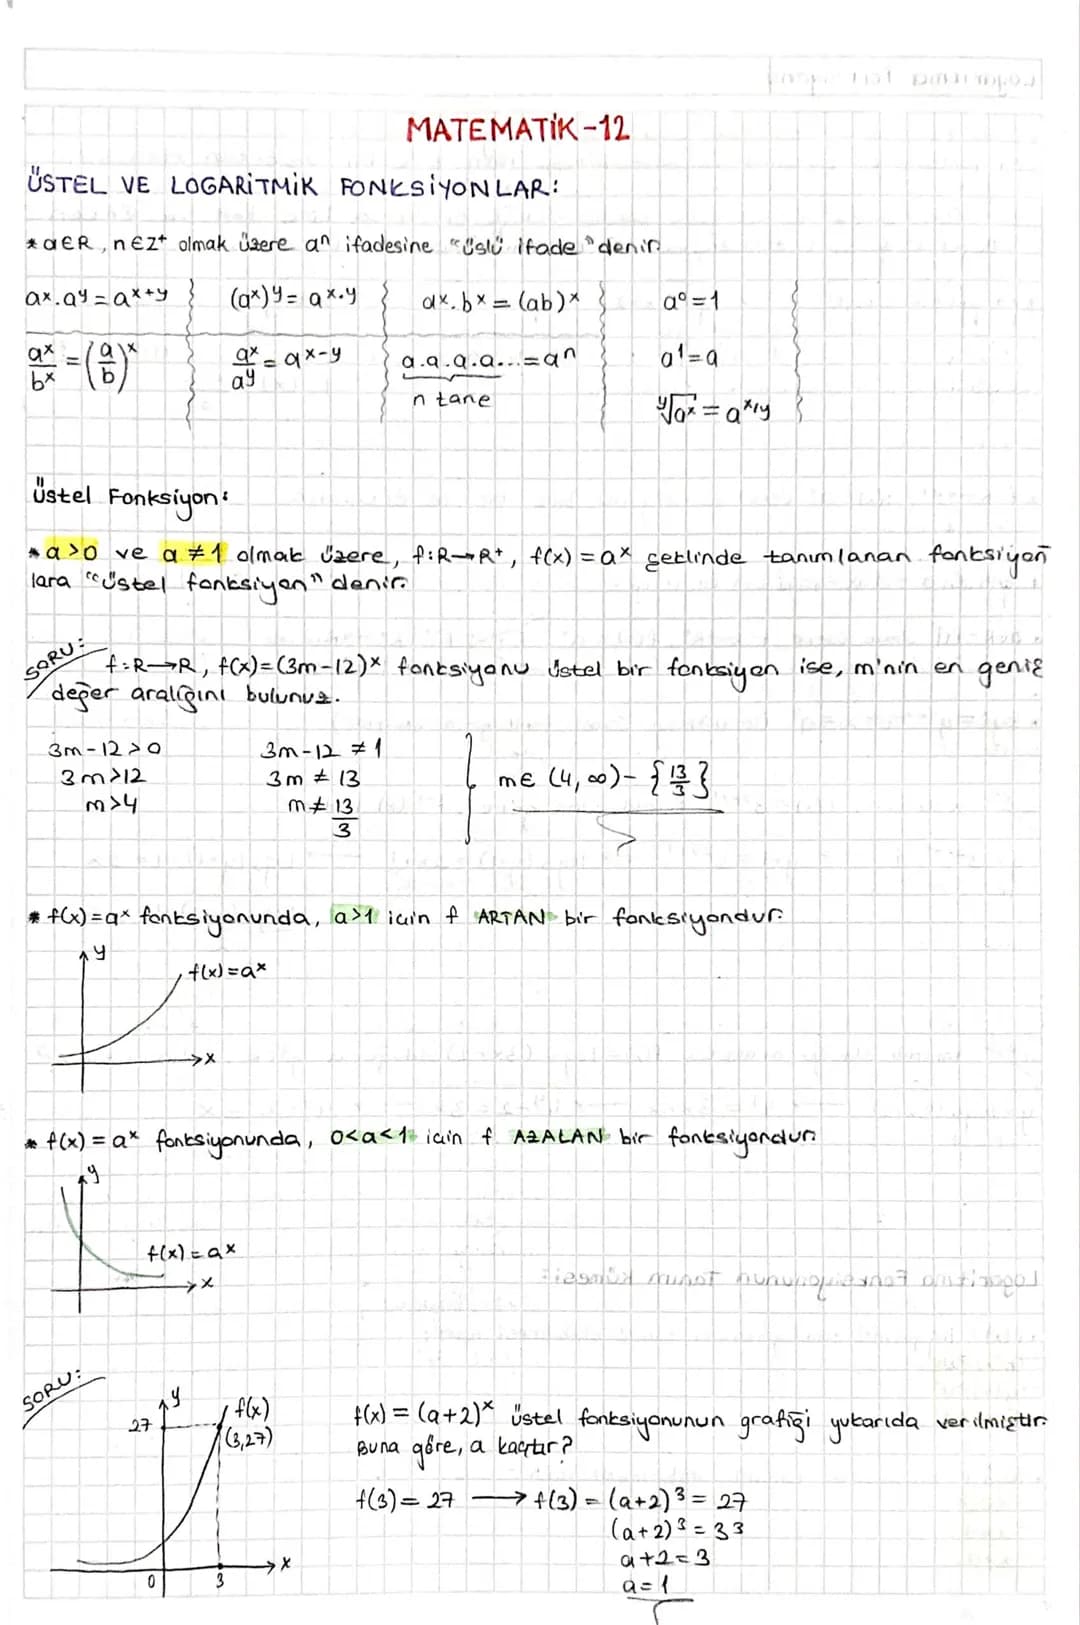 MATEMATİK-12
ÜSTEL VE LOGARİTMİK FONKSİYONLAR:
* a∈R, n∈Z⁺ olmak üzere aⁿ ifadesine "üslü ifade" denir.
aˣ.aʸ = aˣ⁺ʸ (aˣ)ʸ = aˣ·ʸ aˣ.bˣ = (ab)ˣ a⁰=1
aˣ/bˣ = (a/b)ˣ aˣ/aʸ = aˣ⁻ʸ a.a.a.a...=aⁿ a¹=a
n tane ʸ√aˣ = a^x/y
Üstel Fonksiyon:
* a>0 ve a≠1 olmak üzere, f:R→R⁺, f(x)=aˣ şeklinde tanımlanan fonksiyon
lara "üstel fonksiyon" denir.
SORU:
f:R→R, f(x)=(3m-12)ˣ fonksiyonu üstel bir fonksiyon ise, m'nin en geniş
değer aralığını bulunuz.
3m-12>0 3m-12≠1
3m>12 3m≠13 m∈ (4,∞)- {13/3}
m>4 m≠13/3
* f(x)=aˣ fonksiyonunda, a>1 için f ARTAN bir fonksiyondur.
y
f(x)=aˣ
x
* f(x)=aˣ fonksiyonunda, 0<a<1 için f AZALAN bir fonksiyondur.
y
f(x)=aˣ
x
SORU:
y
27 f(x)
(3,27)
0 3 x
f(x) = (a+2)ˣ üstel fonksiyonunun grafiği yukarıda verilmiştir.
Buna göre, a kaçtır?
f(3)=27 → f(3) = (a+2)³ = 27
(a+2)³ = 3³
a+2=3
a=1